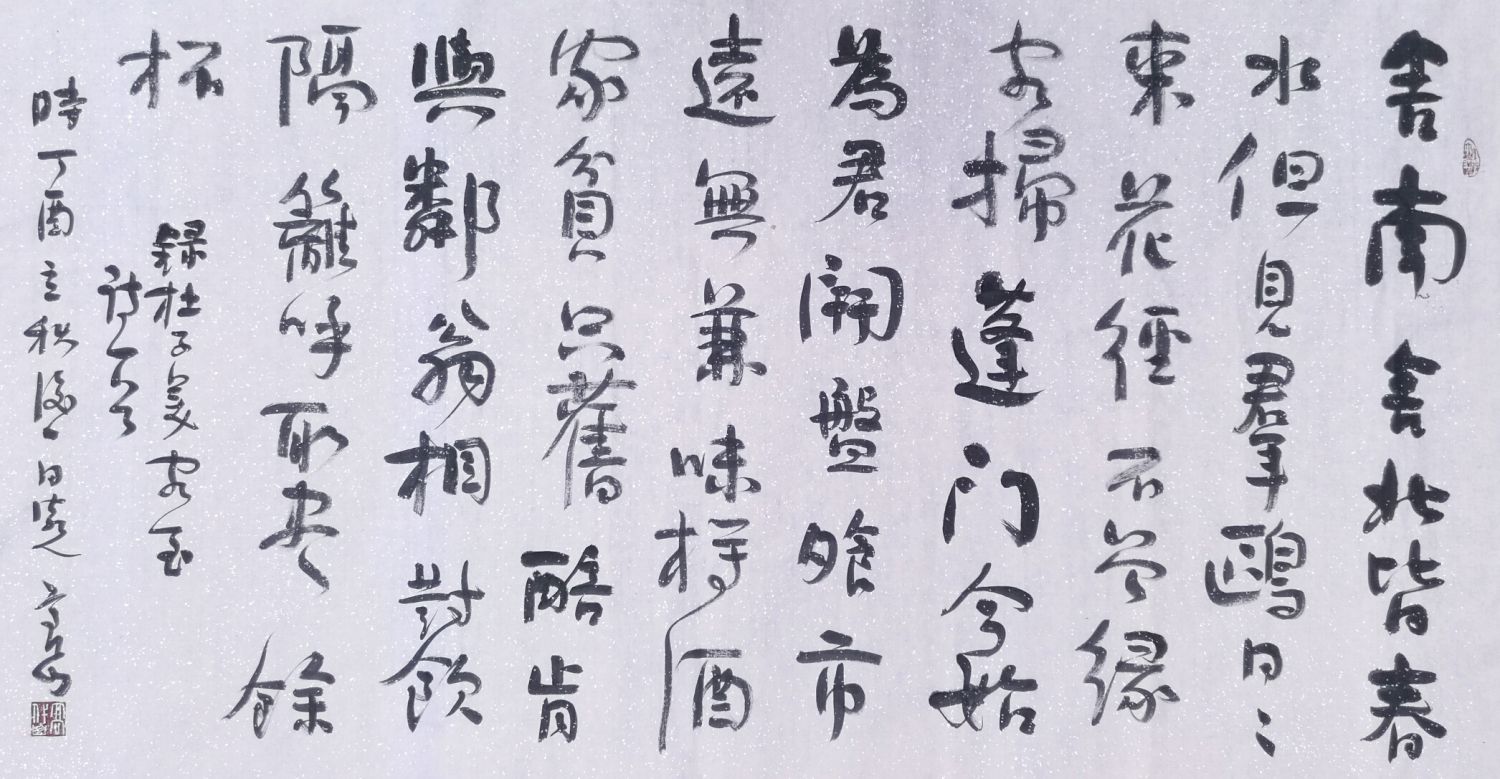 舍南舍北皆春
水但見羣鷗日〻
來花徑不曾緣
客掃蓬门今始
為君開盤飧市
遠無兼味樽酒
家貧只舊醅肯
與鄰翁相對飲
隔籬呼取尽餘
杯
錄杜子美客至
詩一首
時丁酉立秋後一日